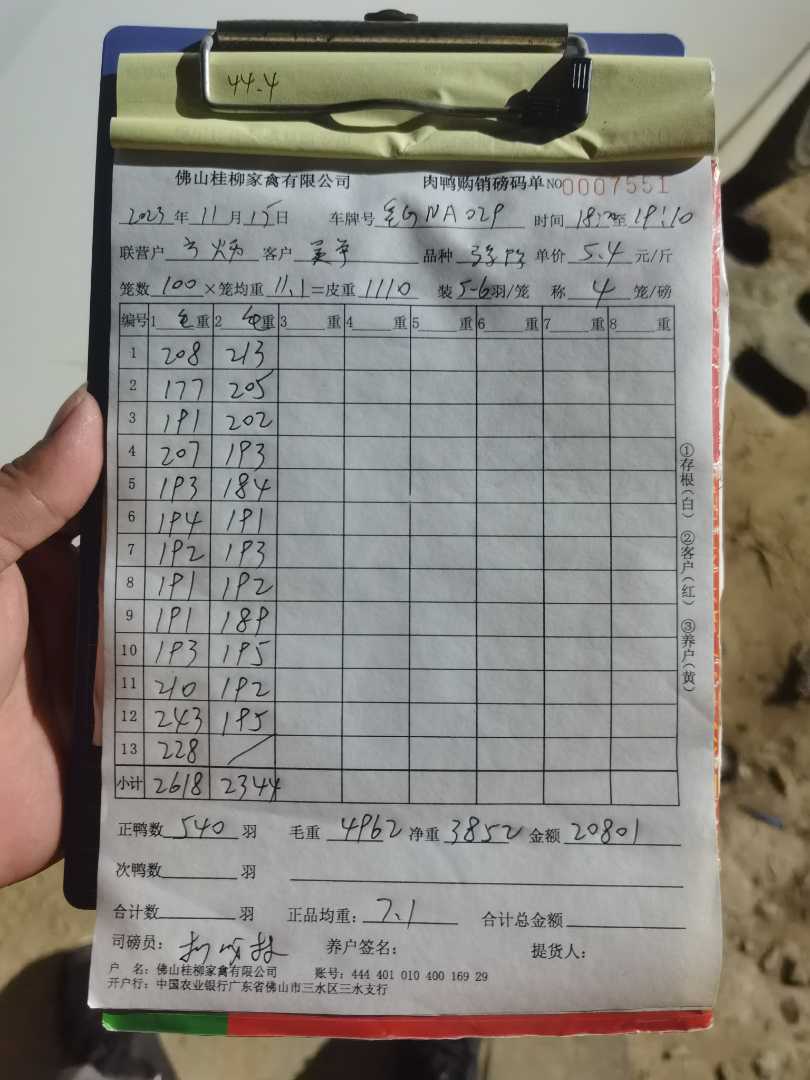 44.4
佛山桂柳家禽有限公司 肉鸭购销磅码单 NO 0007551
2023年11月15日 车牌号 NA029 时间 18:20至19:10
联营户 客户 品种 单价 5.4 元/斤
笼数 100 ×笼均重 11.1 =皮重 1110 装 5-6 羽/笼 称 4 笼/磅
编号 1 毛重 2 毛重 3 重 4 重 5 重 6 重 7 重 8 重
1 208 213
2 177 205
3 191 202
4 207 193
5 193 184
6 194 191
7 192 193
8 191 192
9 191 189
10 193 195
11 210 192
12 243 195
13 228 /
小计 2618 2344
①存根(白) ②客户(红) ③养户(黄)
正鸭数 540 羽 毛重 4962 净重 3852 金额 20801
次鸭数 羽
合计数 羽 正品均重: 7.1 合计总金额
司磅员: 养户签名: 提货人:
户 名: 佛山桂柳家禽有限公司 账号: 444 401 010 400 169 29
开户行: 中国农业银行广东省佛山市三水区三水支行